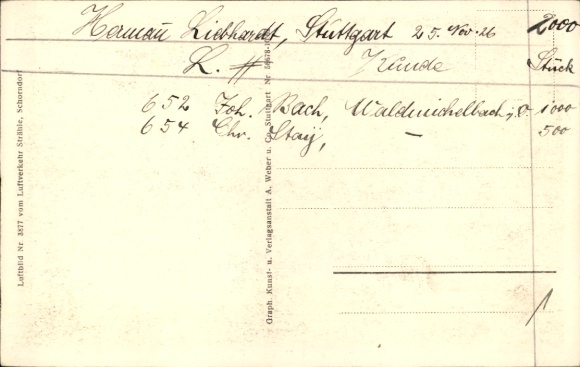 Hermann Liebhardt, Stuttgart 25. Nov. 26 2000
L. # Kunde Stück
652 Joh. Bach, Waldmichelbach i/O. 1000
654 Chr. Stay, — 500
Luftbild Nr 3877 vom Luftverkehr Strähle, Schorndorf
Graph. Kunst- u. Verlagsanstalt A. Weber u. Co. Stuttgart Nr